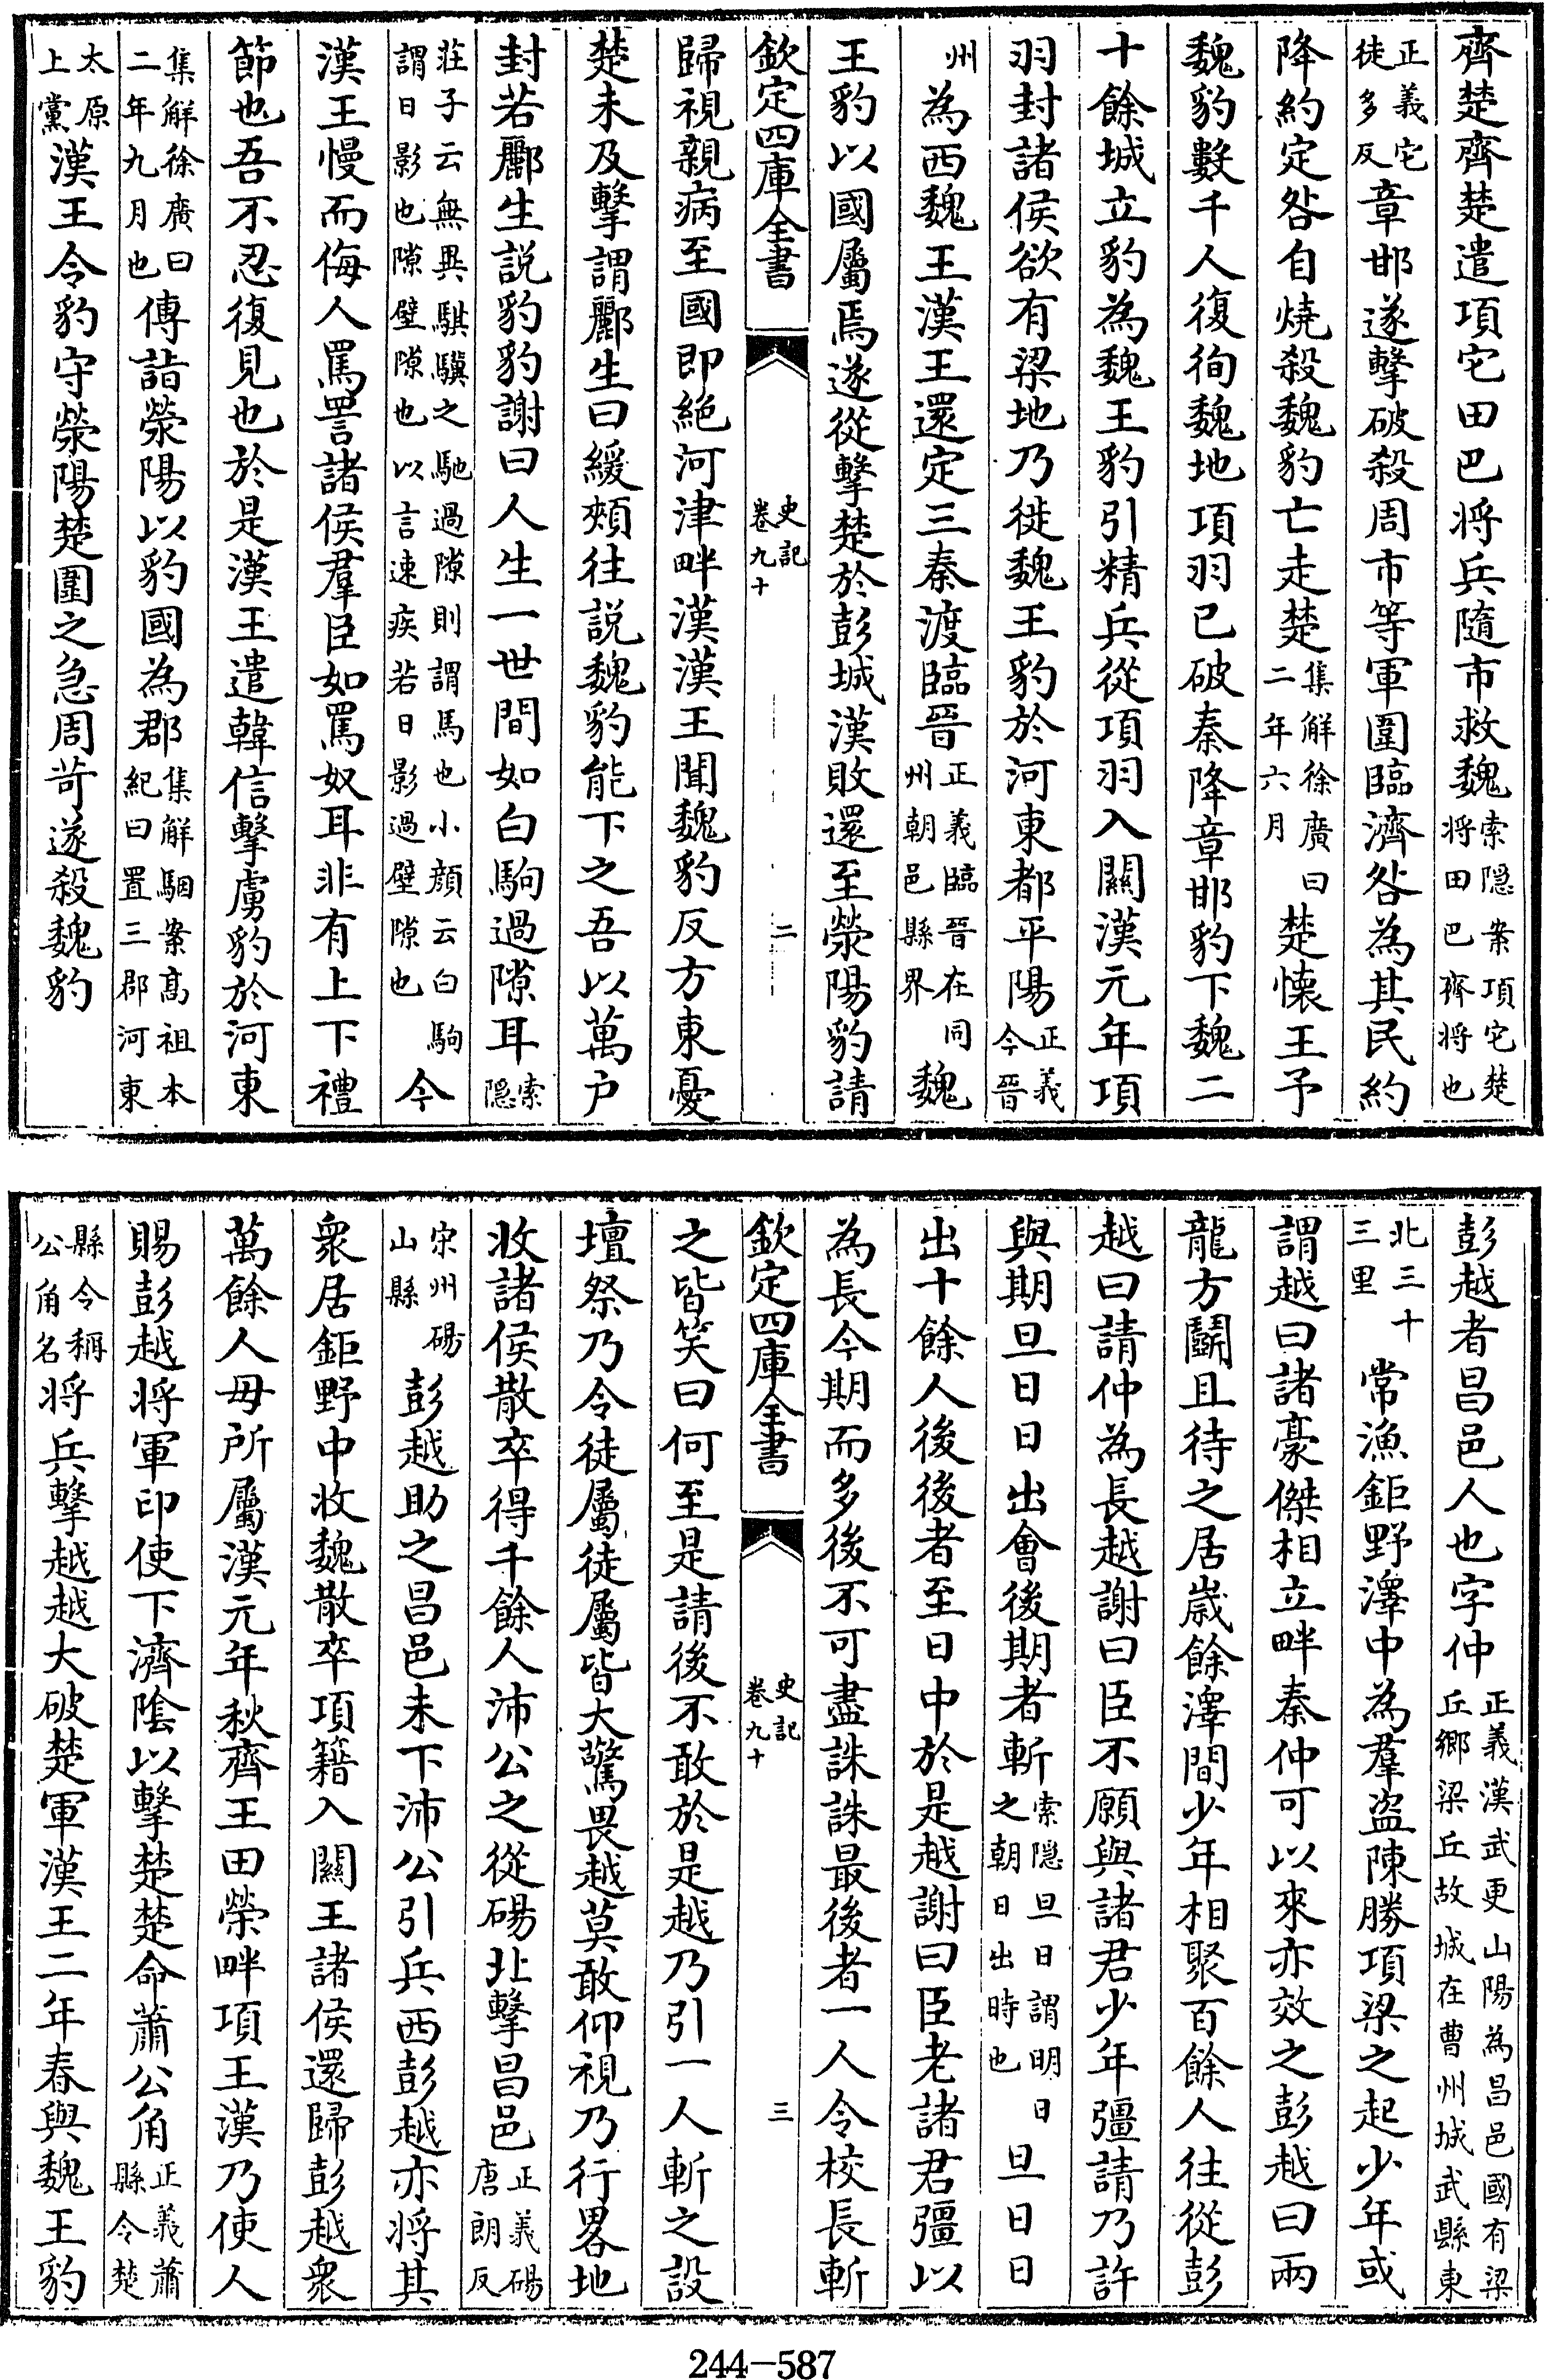 齊楚齊楚遣項它田巴将兵隨市救魏索隠案項宅楚将田巴齊将也
正義宅徒多反章邯遂擊破殺周市等軍圍臨濟咎為其民約
降約定咎自燒殺魏豹亡走楚集解徐廣曰二年六月楚懐王予
魏豹數千人復徇魏地項羽已破秦降章邯豹下魏二
十餘城立豹為魏王豹引精兵從項羽入關漢元年項
羽封諸侯欲有梁地乃徙魏王豹於河東都平陽正義今晉
州為西魏王漢王還定三秦渡臨晉正義臨晉在同州朝邑縣界魏
王豹以國屬焉遂從擊楚於彭城漢敗還至滎陽豹請
欽定四庫全書
史記卷九十
二
歸視親病至國即絕河津畔漢漢王聞魏豹反方東憂
楚未及擊謂酈生曰緩頰往説魏豹能下之吾以萬户
封若酈生説豹豹謝曰人生一世間如白駒過隙耳索隠
莊子云無異騏驥之馳過隙則謂馬也小顔云白駒謂日影也隙壁隙也以言速疾若日影過壁隙也今
漢王慢而侮人罵詈諸侯羣臣如罵奴耳非有上下禮
節也吾不忍復見也於是漢王遣韓信擊虜豹於河東
集解徐廣曰二年九月也傳詣滎陽以豹國為郡集解駰案高祖本紀曰置三郡河東
太原上黨漢王令豹守滎陽楚圍之急周苛遂殺魏豹
彭越者昌邑人也字仲正義漢武更山陽為昌邑國有梁丘鄉梁丘故城在曹州城武縣東
北三十三里常漁鉅野澤中為羣盗陳勝項梁之起少年或
謂越曰諸豪傑相立畔秦仲可以來亦效之彭越曰兩
龍方鬭且待之居嵗餘澤間少年相聚百餘人往從彭
越曰請仲為長越謝曰臣不願與諸君少年彊請乃許
與期旦日日出會後期者斬索隠旦日謂明日之朝日出時也旦日日
出十餘人後後者至日中於是越謝曰臣老諸君彊以
為長今期而多後不可盡誅誅最後者一人令校長斬
欽定四庫全書
史記卷九十
三
之皆笑曰何至是請後不敢於是越乃引一人斬之設
壇祭乃令徒屬徒屬皆大驚畏越莫敢仰視乃行畧地
收諸侯散卒得千餘人沛公之從碭北擊昌邑正義碭唐朗反
宋州碭山縣彭越助之昌邑未下沛公引兵西彭越亦將其
衆居鉅野中收魏散卒項籍入關王諸侯還歸彭越衆
萬餘人毋所屬漢元年秋齊王田榮畔項王漢乃使人
賜彭越将軍印使下濟隂以擊楚楚命蕭公角正義蕭縣令楚
縣令稱公角名将兵擊越越大破楚軍漢王二年春與魏王豹
244-587